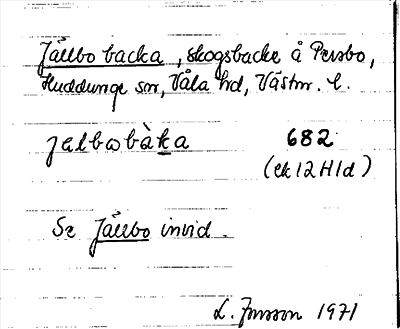 Jällbo backa, skogsbacke å Persbo,
Huddunge sn, Våla hd, Västm. l.
jalbobàka 682
(ek 12H1d)
Se Jällbo invid.
L. Jonsson 1971